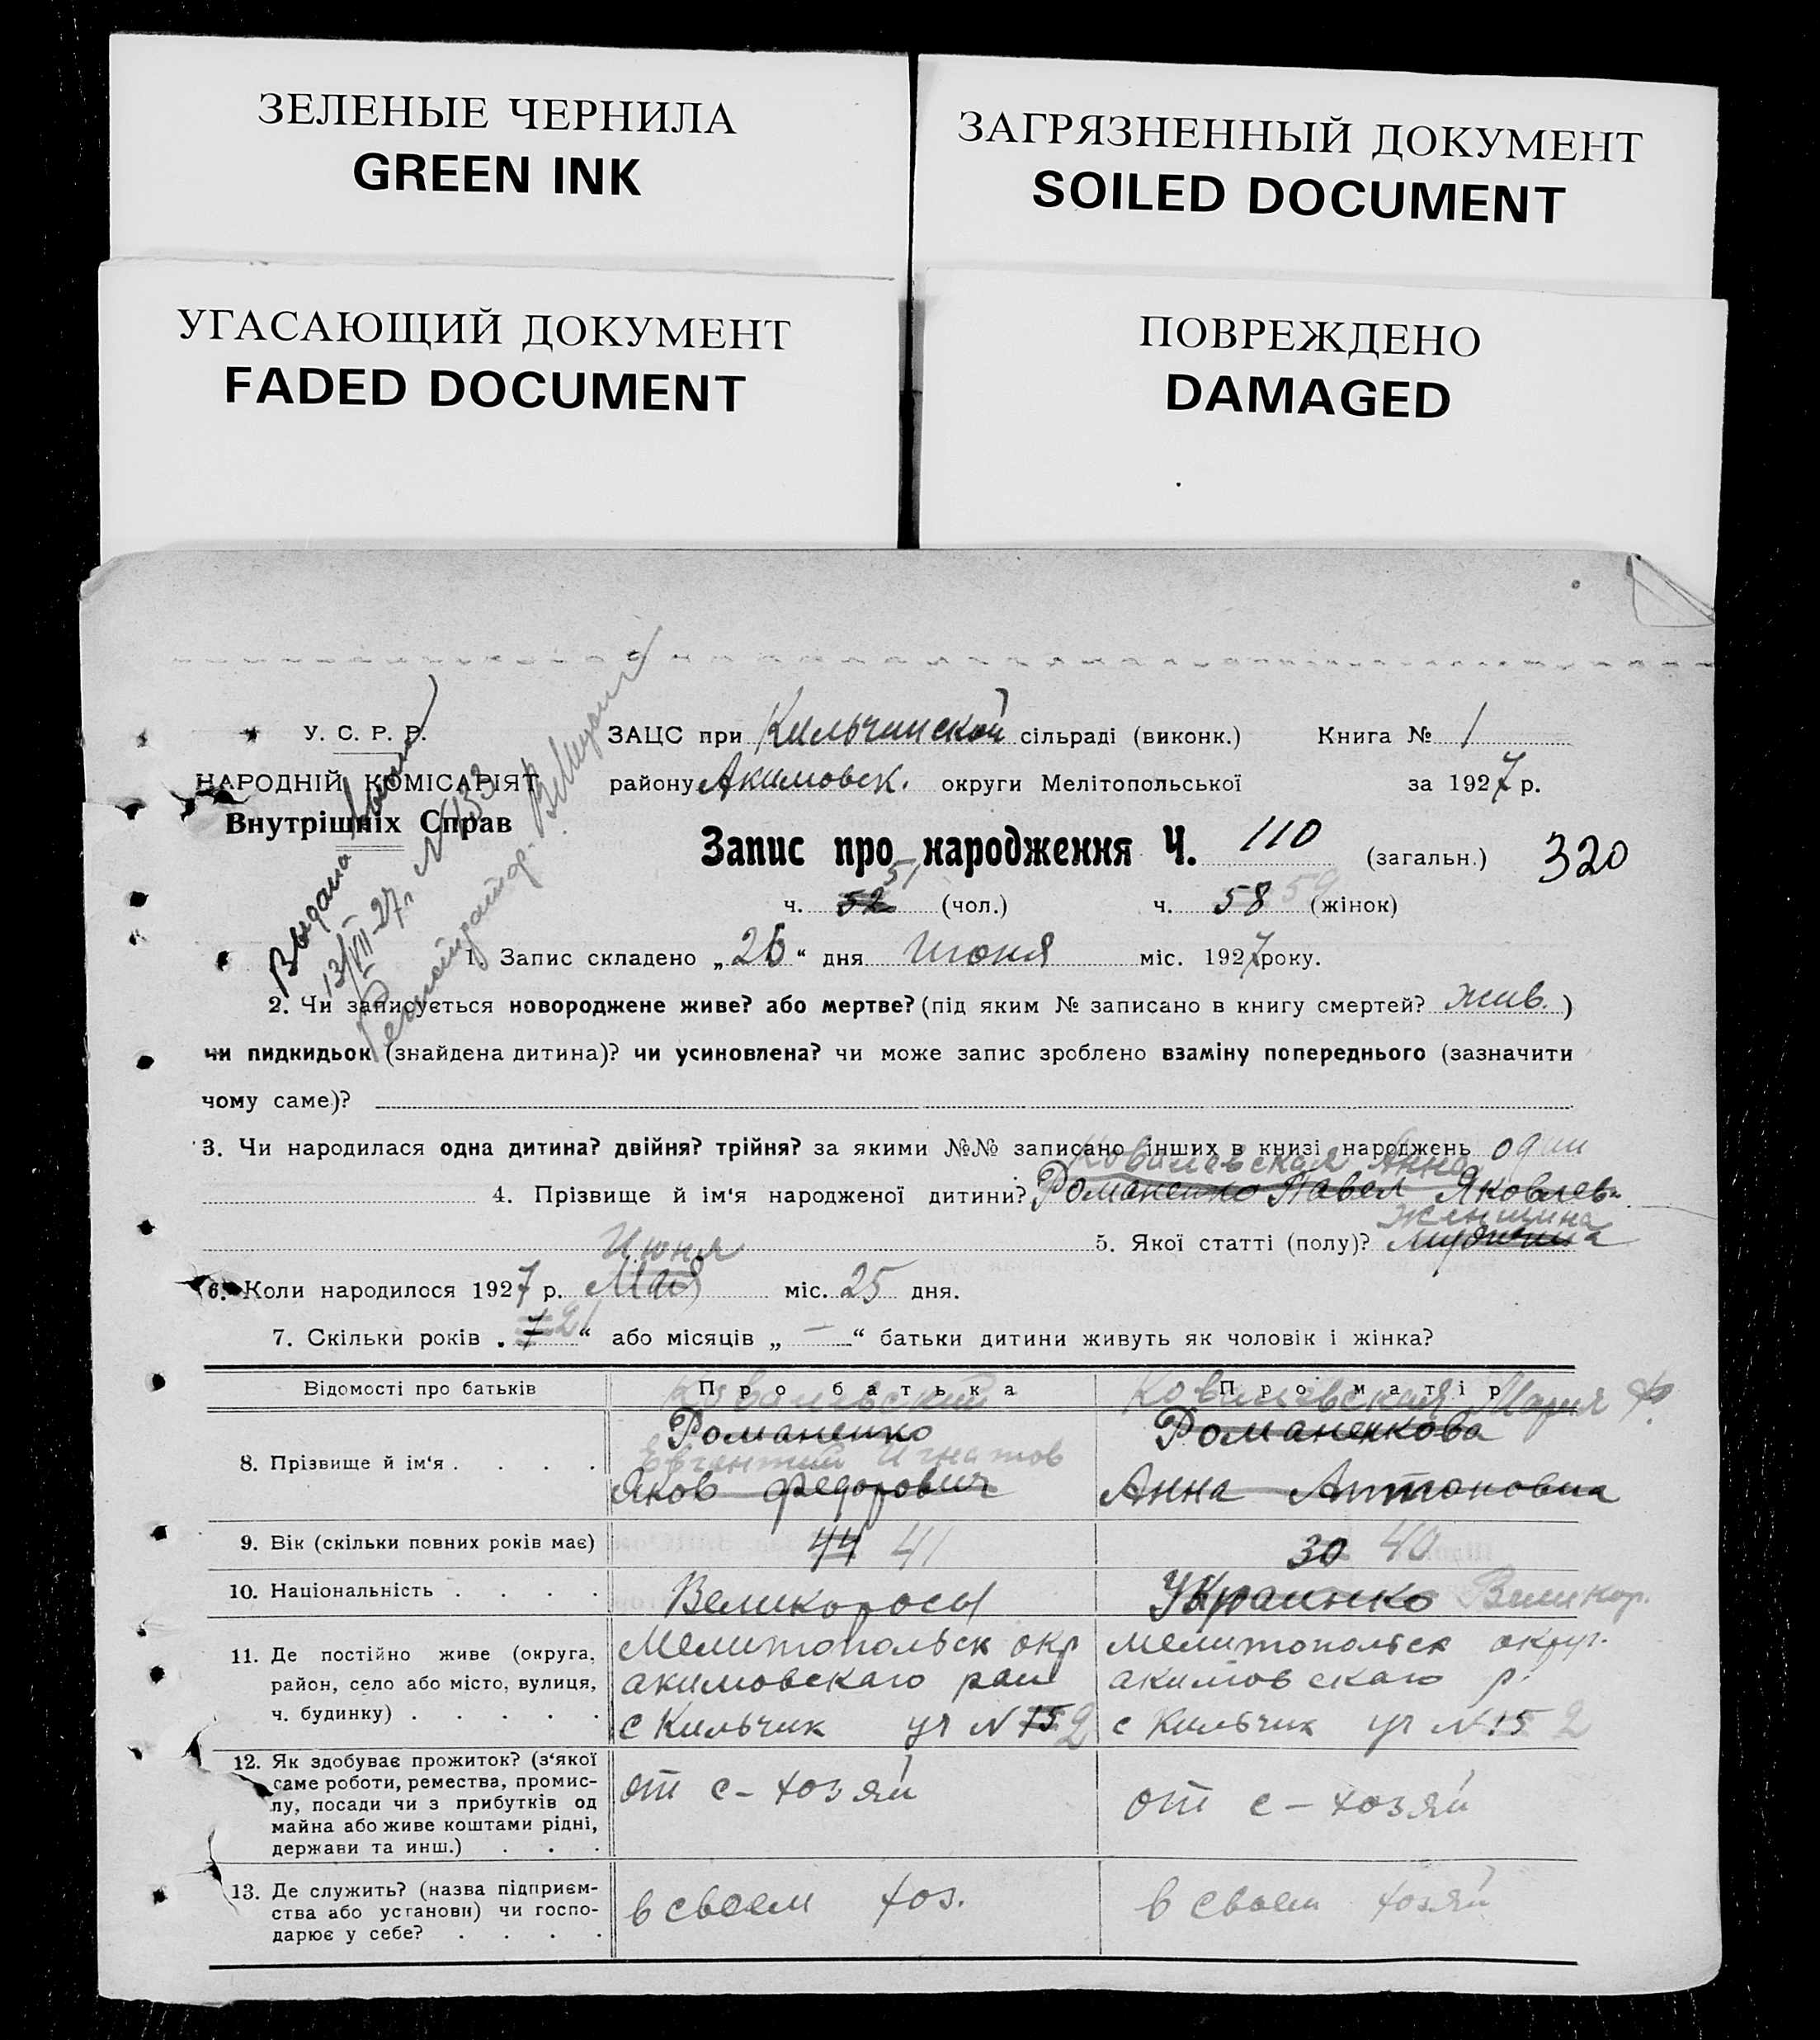 ЗЕЛЕНЫЕ ЧЕРНИЛА
GREEN INK
ЗАГРЯЗНЕННЫЙ ДОКУМЕНТ
SOILED DOCUMENT
УГАСАЮЩИЙ ДОКУМЕНТ
FADED DOCUMENT
ПОВРЕЖДЕНО
DAMAGED
У. С. Р. Р.
НАРОДНІЙ КОМІСАРІЯТ
Внутрішніх Справ
Выдана
13/VII-27 г. N 133
ЗАЦС при Кильчинской сільраді (виконк.) Книга № 1
району Акимовск. округи Мелітопольської за 1927 р.
Запис про народження Ч. 110 (загальн.) 320
ч. 52 51 (чол.) ч. 58 59 (жінок)
1. Запис складено „26“ дня Июня міс. 1927 року.
2. Чи записується новороджене живе? або мертве? (під яким № записано в книгу смертей? жив.)
чи пидкидьок (знайдена дитина)? чи усиновлена? чи може запис зроблено взаміну попереднього (зазначити
чому саме)?
3. Чи народилася одна дитина? двійня? трійня? за якими №№ записано інших в книзі народжень один
Ковалевская Анна
4. Прізвище й ім‘я народженої дитини? Романенко Павел Яковлев.
Женщина
5. Якої статті (полу)? Мужчина
Июня
6. Коли народилося 1927 р. Мая міс. 25 дня.
7. Скільки років „7 21“ або місяців „—“ батьки дитини живуть як чоловік і жінка?
Відомості про батьків Про батька Про матір
Ковалевский Ковалевская Мария Ф.
Романенко Романенкова
8. Прізвище й ім‘я . . . . Евгентий Игнатов
Яков Федорович Анна Антоновна
9. Вік (скільки повних років має) 44 41 30 40
10. Національність . . . . Великороссы Украинко Великор.
11. Де постійно живе (округа, район, село або місто, вулиця, ч. будинку) . . . . .
Мелитопольск окр
акимовскаго раи
с Кильчик ул N 15 2
Мелитопольск округ.
акимовскаго р.
с Кильчик ул N 15 2
12. Як здобуває прожиток? (з‘якої
саме роботи, ремества, промис-
лу, посади чи з прибутків од
майна або живе коштами рідні,
держави та инш.) . . .
от с-хозяй
от с-хозяй
13. Де служить? (назва підприєм-
ства або установи) чи госпо-
дарює у себе? . . . .
в своем хоз.
в своем хозяй